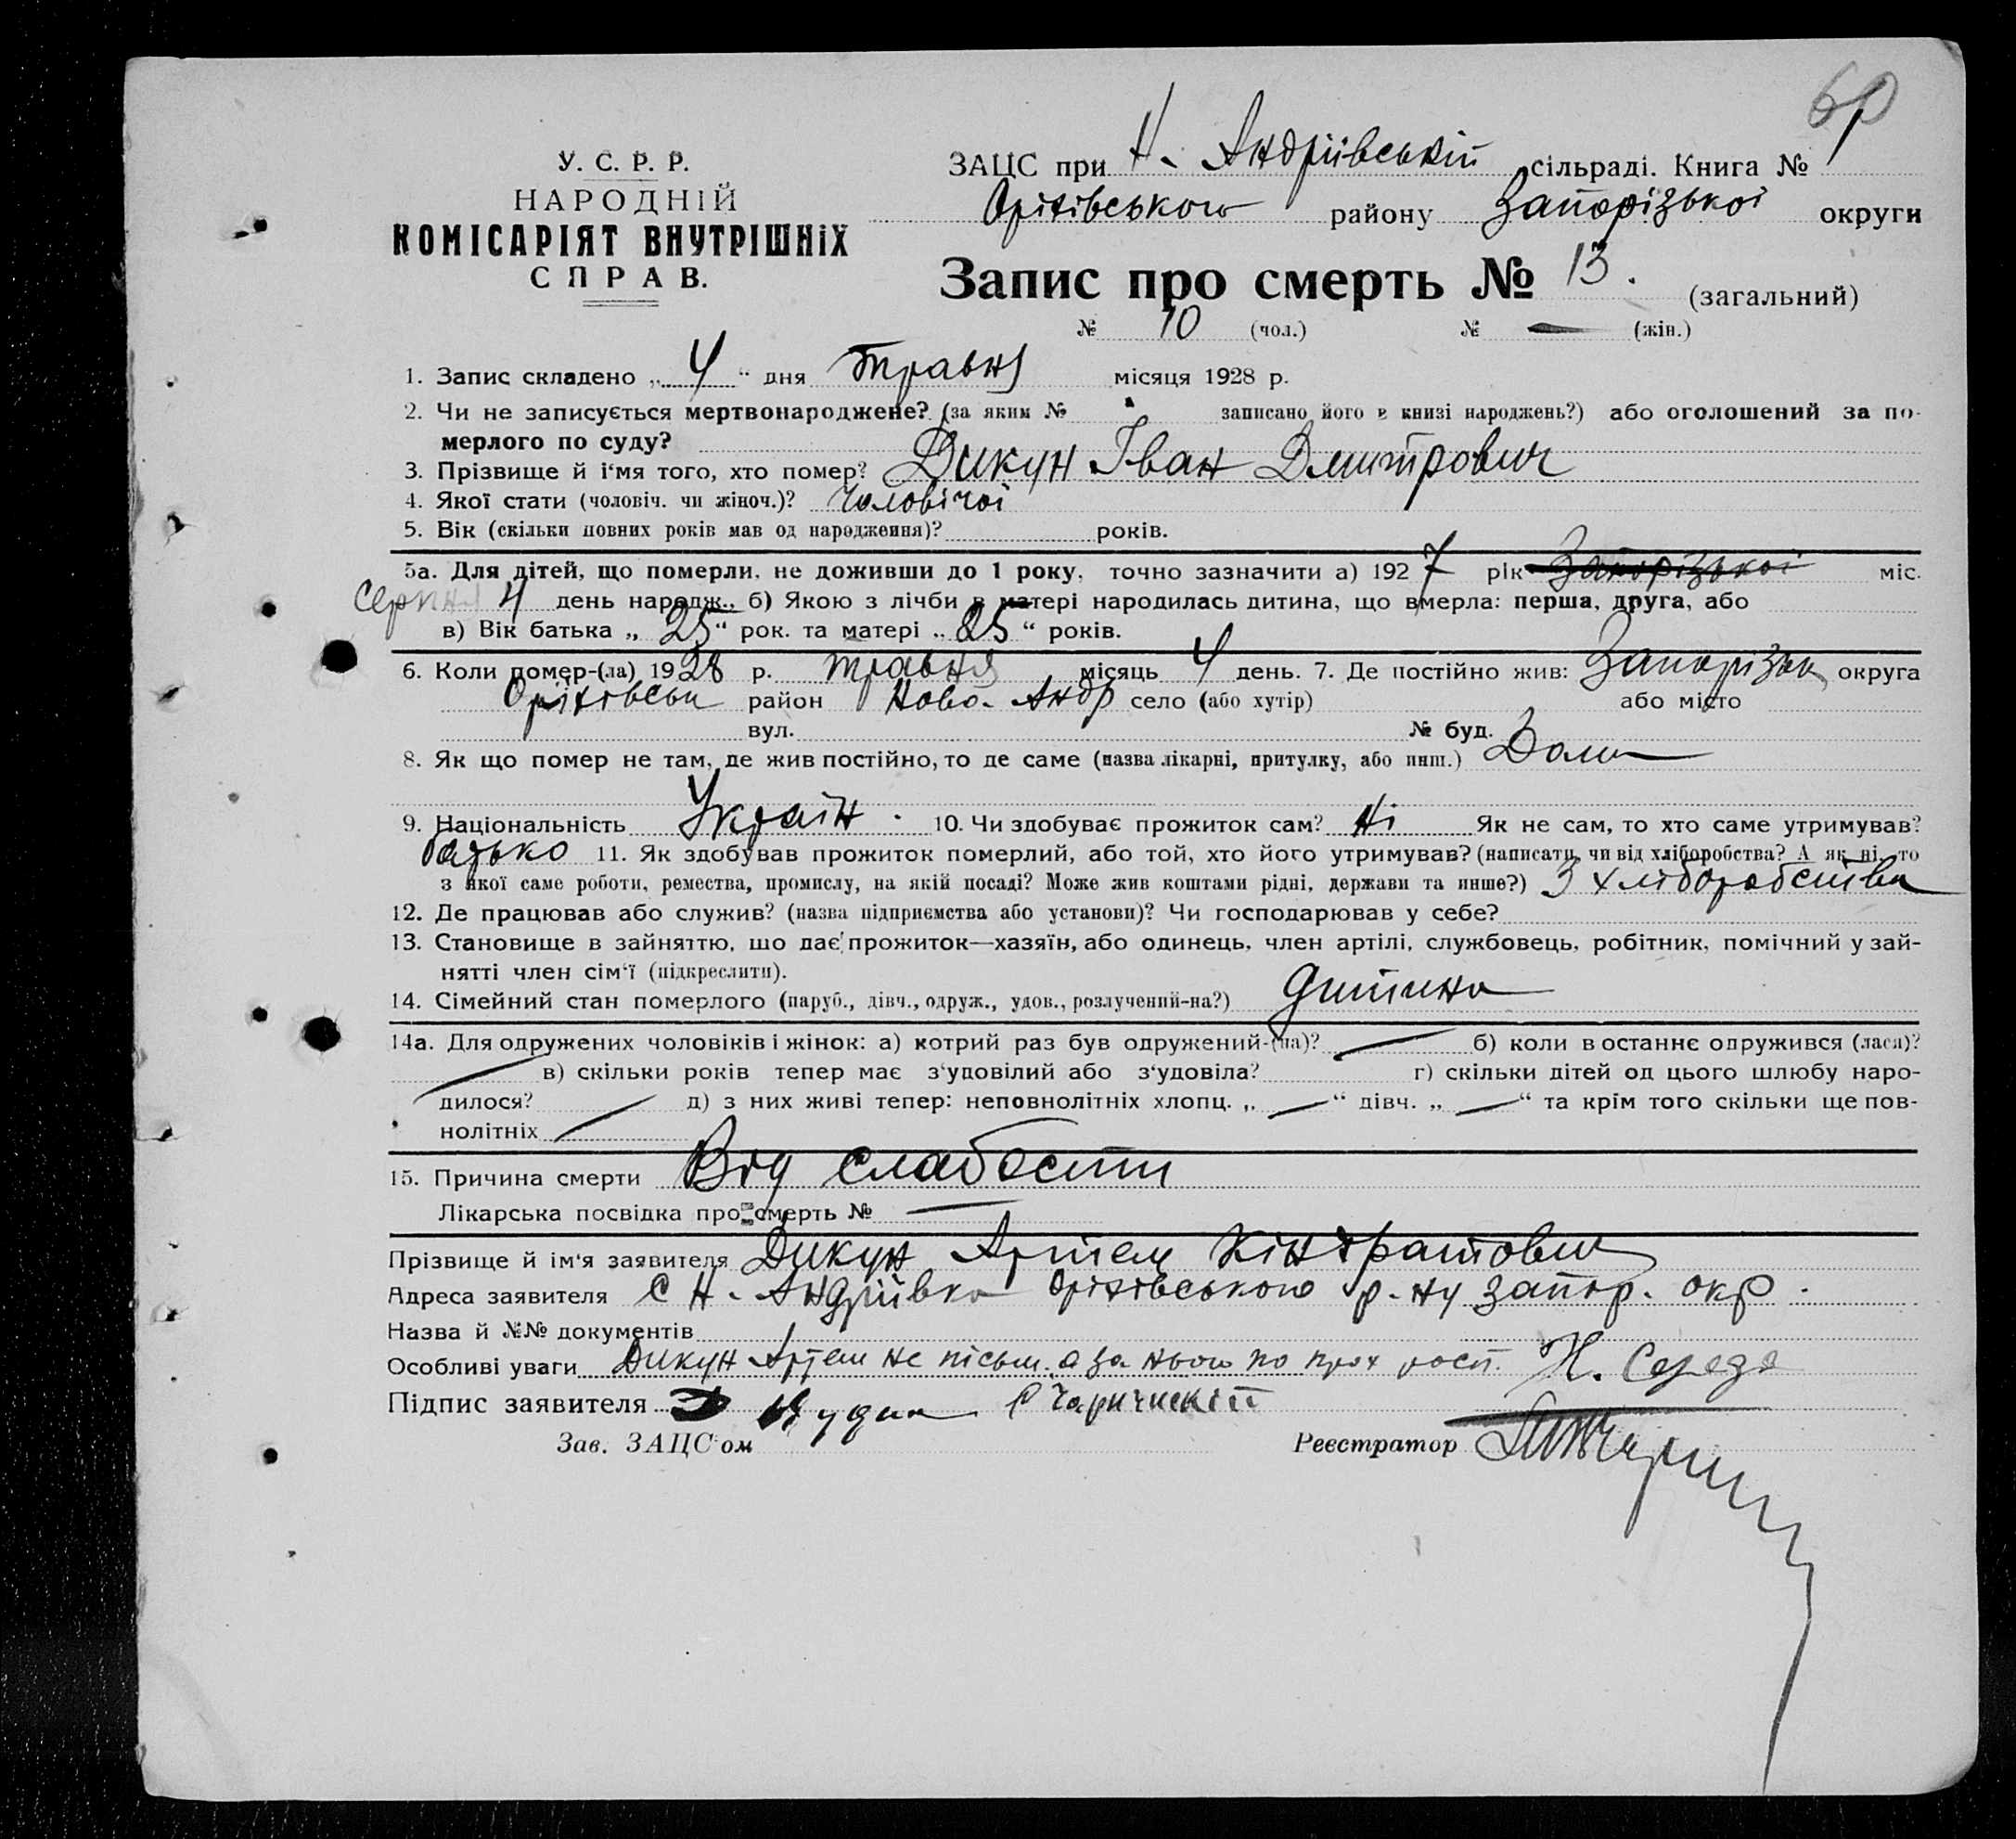 60
У. С. Р. Р.
НАРОДНІЙ
КОМІСАРІЯТ ВНУТРІШНІХ
СПРАВ.
ЗАЦС при Н. Андріівській сільраді. Книга №
Оріхівського району Запорізької округи
Запис про смерть № 13. (загальний)
№ 10 (чол.) № — (жін.)
1. Запис складено „ 4 “ дня травня місяця 1928 р.
2. Чи не записується мертвонароджене? (за яким № записано його в книзі народжень?) або оголошений за по-
мерлого по суду?
3. Прізвище й і‘мя того, хто помер? Дикун Іван Дмитрович
4. Якої стати (чоловіч. чи жіноч.)? чоловічої
5. Вік (скільки повних років мав од народження)? років.
5а. Для дітей, що померли, не доживши до 1 року, точно зазначити а) 1927 рік Запорізької міс.
Серпня 4 день народж., б) Якою з лічби в матері народилась дитина, що вмерла: перша, друга, або
в) Вік батька „ 25 “ рок. та матері „ 25 “ років.
6. Коли помер-(ла) 1928 р. травня місяць 4 день. 7. Де постійно жив: Запорізьк округа
Оріхівськ район Ново-Андр село (або хутір) або місто
вул. № буд.
8. Як що помер не там, де жив постійно, то де саме (назва лікарні, притулку, або инш.) Дома
9. Національність Україн. 10. Чи здобуває прожиток сам? Ні Як не сам, то хто саме утримував?
батько 11. Як здобував прожиток померлий, або той, хто його утримував? (написати, чи від хліборобства? А як ні, то
з якої саме роботи, ремества, промислу, на якій посаді? Може жив коштами рідні, держави та инше?) З хліборобства
12. Де працював або служив? (назва підприємства або установи)? Чи господарював у себе?
13. Становище в зайняттю, що дає прожиток—хазяїн, або одинець, член артілі, службовець, робітник, помічний у зай-
нятті член сім‘ї (підкреслити).
14. Сімейний стан померлого (паруб., дівч., одруж., удов., розлучений-на?) дитина
14а. Для одружених чоловіків і жінок: а) котрий раз був одружений-(на)? — б) коли в останнє одружився (лася)?
— в) скільки років тепер має з‘удовілий або з‘удовіла? г) скільки дітей од цього шлюбу наро-
дилося? — д) з них живі тепер: неповнолітніх хлопц. „ — “ дівч. „ — “ та крім того скільки ще пов-
нолітніх —
15. Причина смерти Від слабости
Лікарська посвідка про смерть № —
Прізвище й ім‘я заявителя Дикун Артем Кіндратович
Адреса заявителя с Н-Андріівка Оріхівського р-ну Запор. окр.
Назва й №№ документів
Особливі уваги Дикун Артем не письм. а за нього по прох росп. Н. Середа
Підпис заявителя
Зав. ЗАЦС‘ом Реєстратор